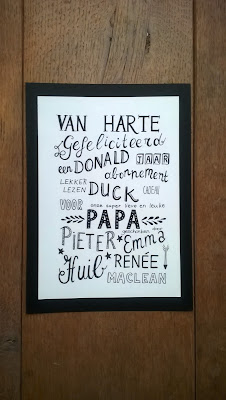 VAN HARTE
Gefeliciteerd
een DONALD JAAR
abonnement
LEKKER LEZEN DUCK CADEAU
VOOR onze super lieve en leuke
PAPA
geschonken door
PIETER Emma
Huib RENÉE
MACLEAN